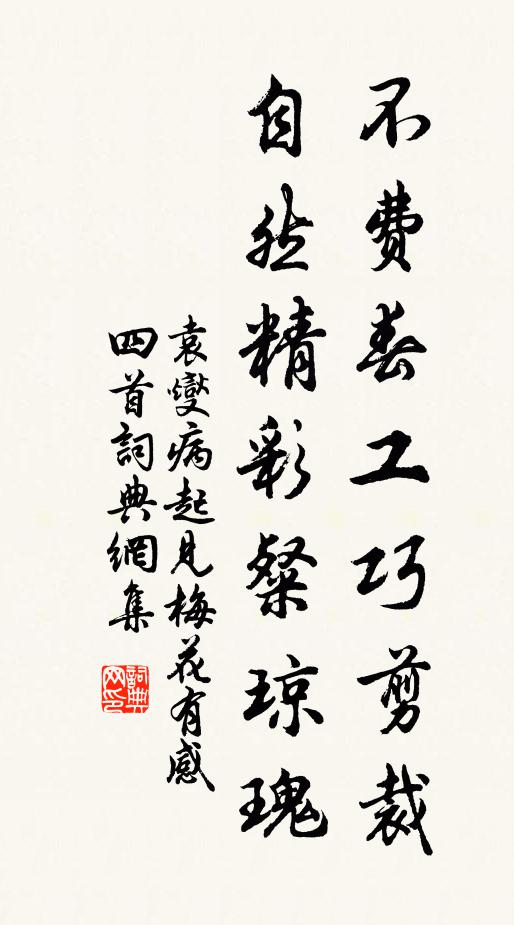 不费春工巧剪裁
自然精彩粲琼瑰
袁燮病起見梅花有感
四首詞典網集
詞典
网印